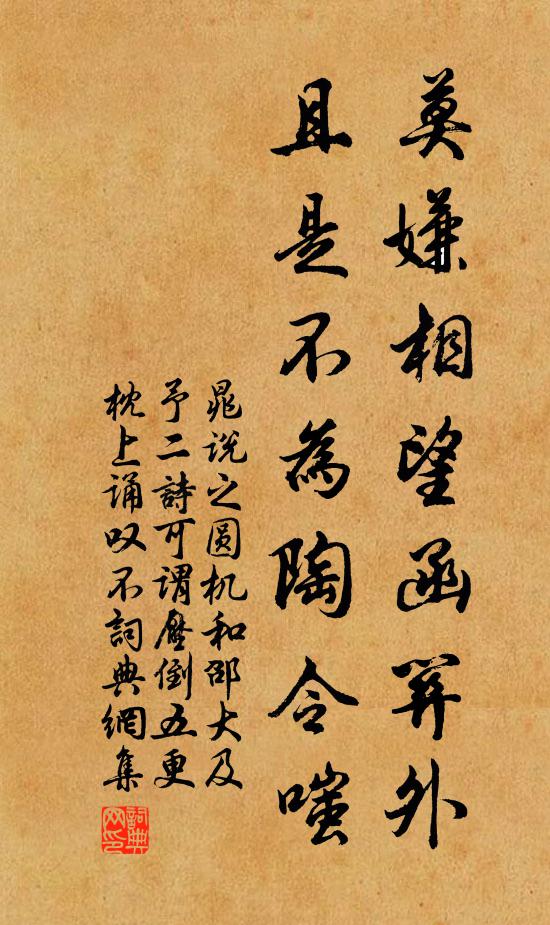 莫嫌相望函關外
且是不為陶令嗤
晁说之圆机和邵大及
予二詩可谓壓倒五更
枕上诵叹不詞典網集
詞典
网印